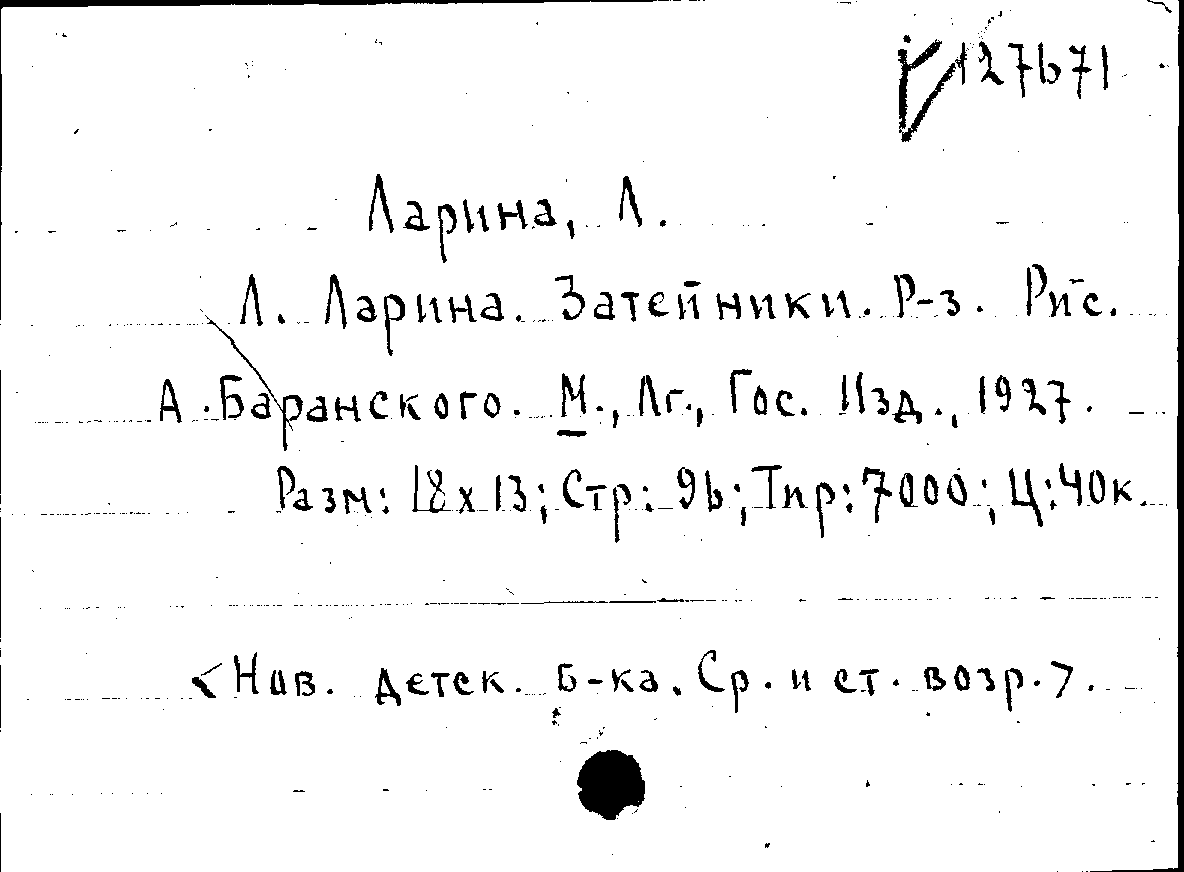 127671
Ларина, Л.
Л. Ларина. Затейники. Р-з. Рис.
А. Баранского. М., Лг., Гос. Изд., 1927.
Разм: 18х13; Стр: 96; Тир: 7000; Ц: 40к.
<Нов. детск. б-ка. Ср. и ст. возр.>.